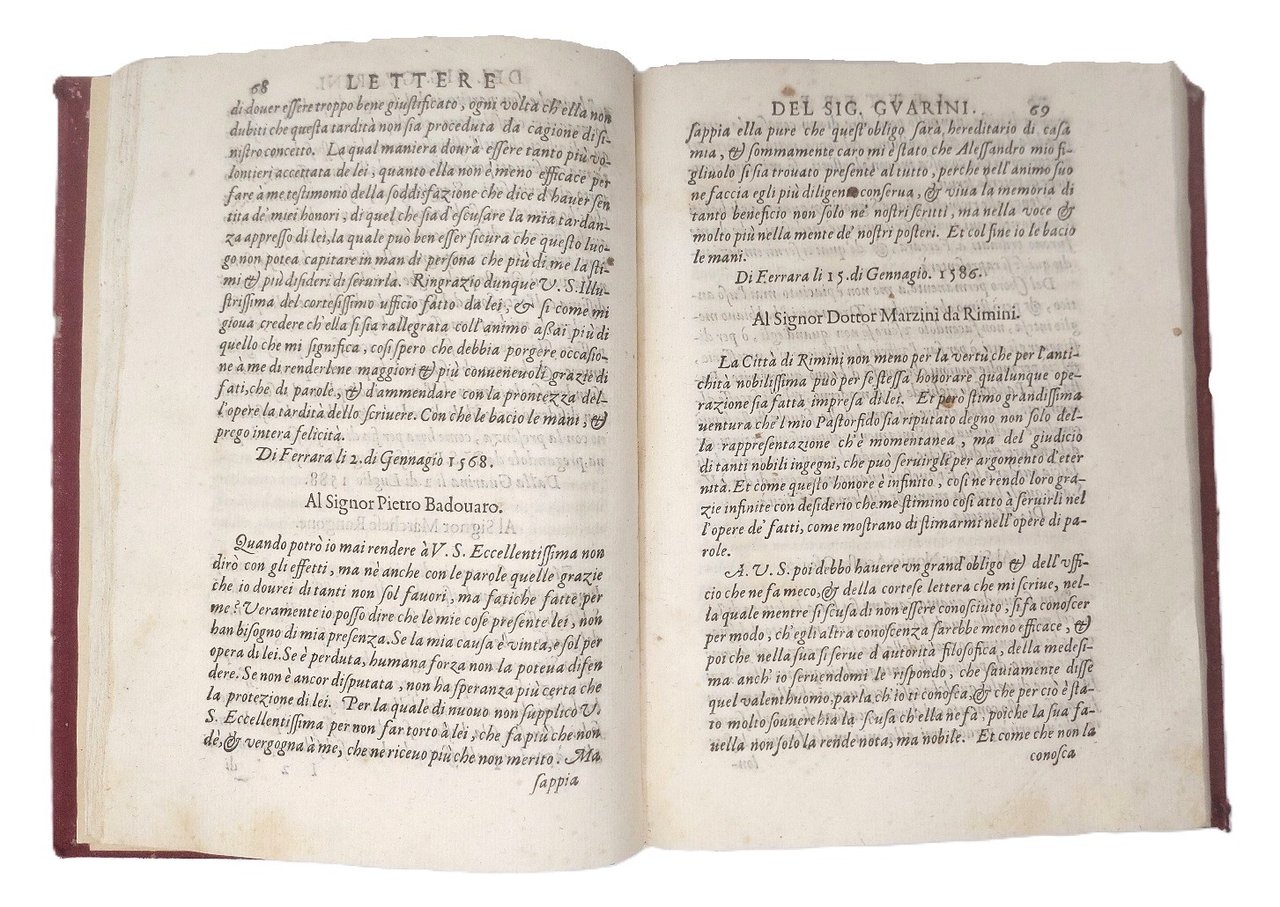 68 LETTERE
di douer eſſere troppo bene giuſtificato, ogni volta ch'ella non
dubiti che queſta tardità non ſia proceduta da cagione di ſi-
niſtro concetto. La qual maniera dourà eſſere tanto più vo-
lontieri accettata da lei, quanto ella non è meno efficace per
fare à me teſtimonio della ſoddisfazione che dice d'hauer ſen
tita de' miei honori, di quel che ſia d'eſcuſare la mia tardan-
za appreſſo di lei, la quale può ben eſſer ſicura che queſto luo-
go non potea capitare in man di perſona che più di me la ſti-
mi & più diſideri di ſeruirla. Ringrazio dunque V. S. Illu-
ſtriſſima del corteſiſſimo ufficio fatto da lei, & ſi come mi
gioua credere ch'ella ſi ſia rallegrata coll'animo aßai più di
quello che mi ſignifica, coſi ſpero che debbia porgere occaſio-
ne à me di renderlene maggiori & più conueneuoli grazie di
fati, che di parole, & d'ammendare con la prontezza del-
l'opere la tardità dello ſcriuere. Con che le bacio le mani, &
prego intera felicita.
Di Ferrara li 2. di Gennagio 1568.
Al Signor Pietro Badouaro.
Quando potrò io mai rendere à V. S. Eccellentiſſima non
dirò con gli effetti, ma nè anche con le parole quelle grazie
che io dourei di tanti non ſol fauori, ma fatiche fatte per
me? Veramente io poſſo dire che le mie coſe preſente lei, non
han biſogno di mia preſenza. Se la mia cauſa è vinta, e ſol per
opera di lei. Se è perduta, humana forza non la poteua difen
dere. Se non è ancor diſputata, non ha ſperanza più certa che
la protezione di lei. Per la quale di nuouo non ſupplico V.
S. Eccellentiſſima per non far torto à lei, che fa più che non
dè, & vergogna à me, che ne riceuo più che non merito. Ma
ſappia
DEL SIG. GVARINI. 69
ſappia ella pure che queſt'obligo ſarà hereditario di caſa
mia, & ſommamente caro mi è ſtato che Aleſſandro mio fi-
gliuolo ſi ſia trouato preſente al tutto, perche nell'animo ſuo
ne faccia egli più diligente conſerua, & viua la memoria di
tanto beneficio non ſolo ne' noſtri ſcritti, ma nella voce &
molto più nella mente de' noſtri poſteri. Et col fine io le bacio
le mani.
Di Ferrara li 15. di Gennagio. 1586.
Al Signor Dottor Marzini da Rimini.
La Città di Rimini non meno per la vertù che per l'anti-
chità nobiliſſima può per ſe ſteſſa honorare qualunque ope-
razione ſia fatta impreſa di lei. Et però ſtimo grandiſſima
uentura che'l mio Paſtorfido ſia riputato degno non ſolo del-
la rappreſentazione ch'è momentanea, ma del giudicio
di tanti nobili ingegni, che può ſeruirgli per argomento d'eter
nità. Et come queſto honore è infinito, coſi ne rendo loro gra-
zie infinite con deſiderio che me ſtimino coſi atto à ſeruirli nel
l'opere de' fatti, come moſtrano di ſtimarmi nell'opere di pa-
role.
A. V. S. poi debbo hauere vn grand'obligo & dell'vffi-
cio che ne fa meco, & della corteſe lettera che mi ſcriue, nel-
la quale mentre ſi ſcuſa di non eſſere conoſciuto, ſi fa conoſcer
per modo, ch'egli altra conoſcenza ſarebbe meno efficace, &
poi che nella ſua ſi ſerue d'autorità filoſofica, della medeſi-
ma anch'io ſeruendomi le riſpondo, che ſauiamente diſſe
quel valenthuomo, parla ch'io ti conoſca, & che per ciò è ſta-
to molto ſouuerchia la ſcuſa ch'ella ne fà, poiche la ſua fa-
uella non ſolo la rende nota, ma nobile. Et come che non la
conoſca